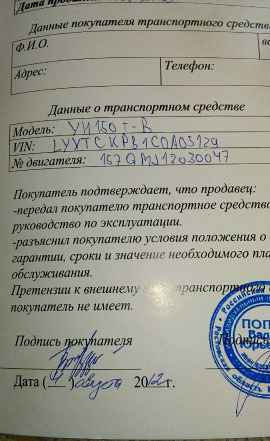 Дата продажи
Данные покупателя транспортного средств
Ф.И.О.
Адрес:
Телефон:
Данные о транспортном средстве
Модель: YH150T-B
VIN: LYXTCKPB1C0A03129
№ двигателя: 157QMJ12030047
Покупатель подтверждает, что продавец:
-передал покупателю транспортное средство
руководство по эксплуатации.
-разъяснил покупателю условия положения о
гарантии, сроки и значение необходимого пла
обслуживания.
Претензии к внешнему транспортного
покупатель не имеет.
Подпись покупателя
Дата ( августа 2012 г.